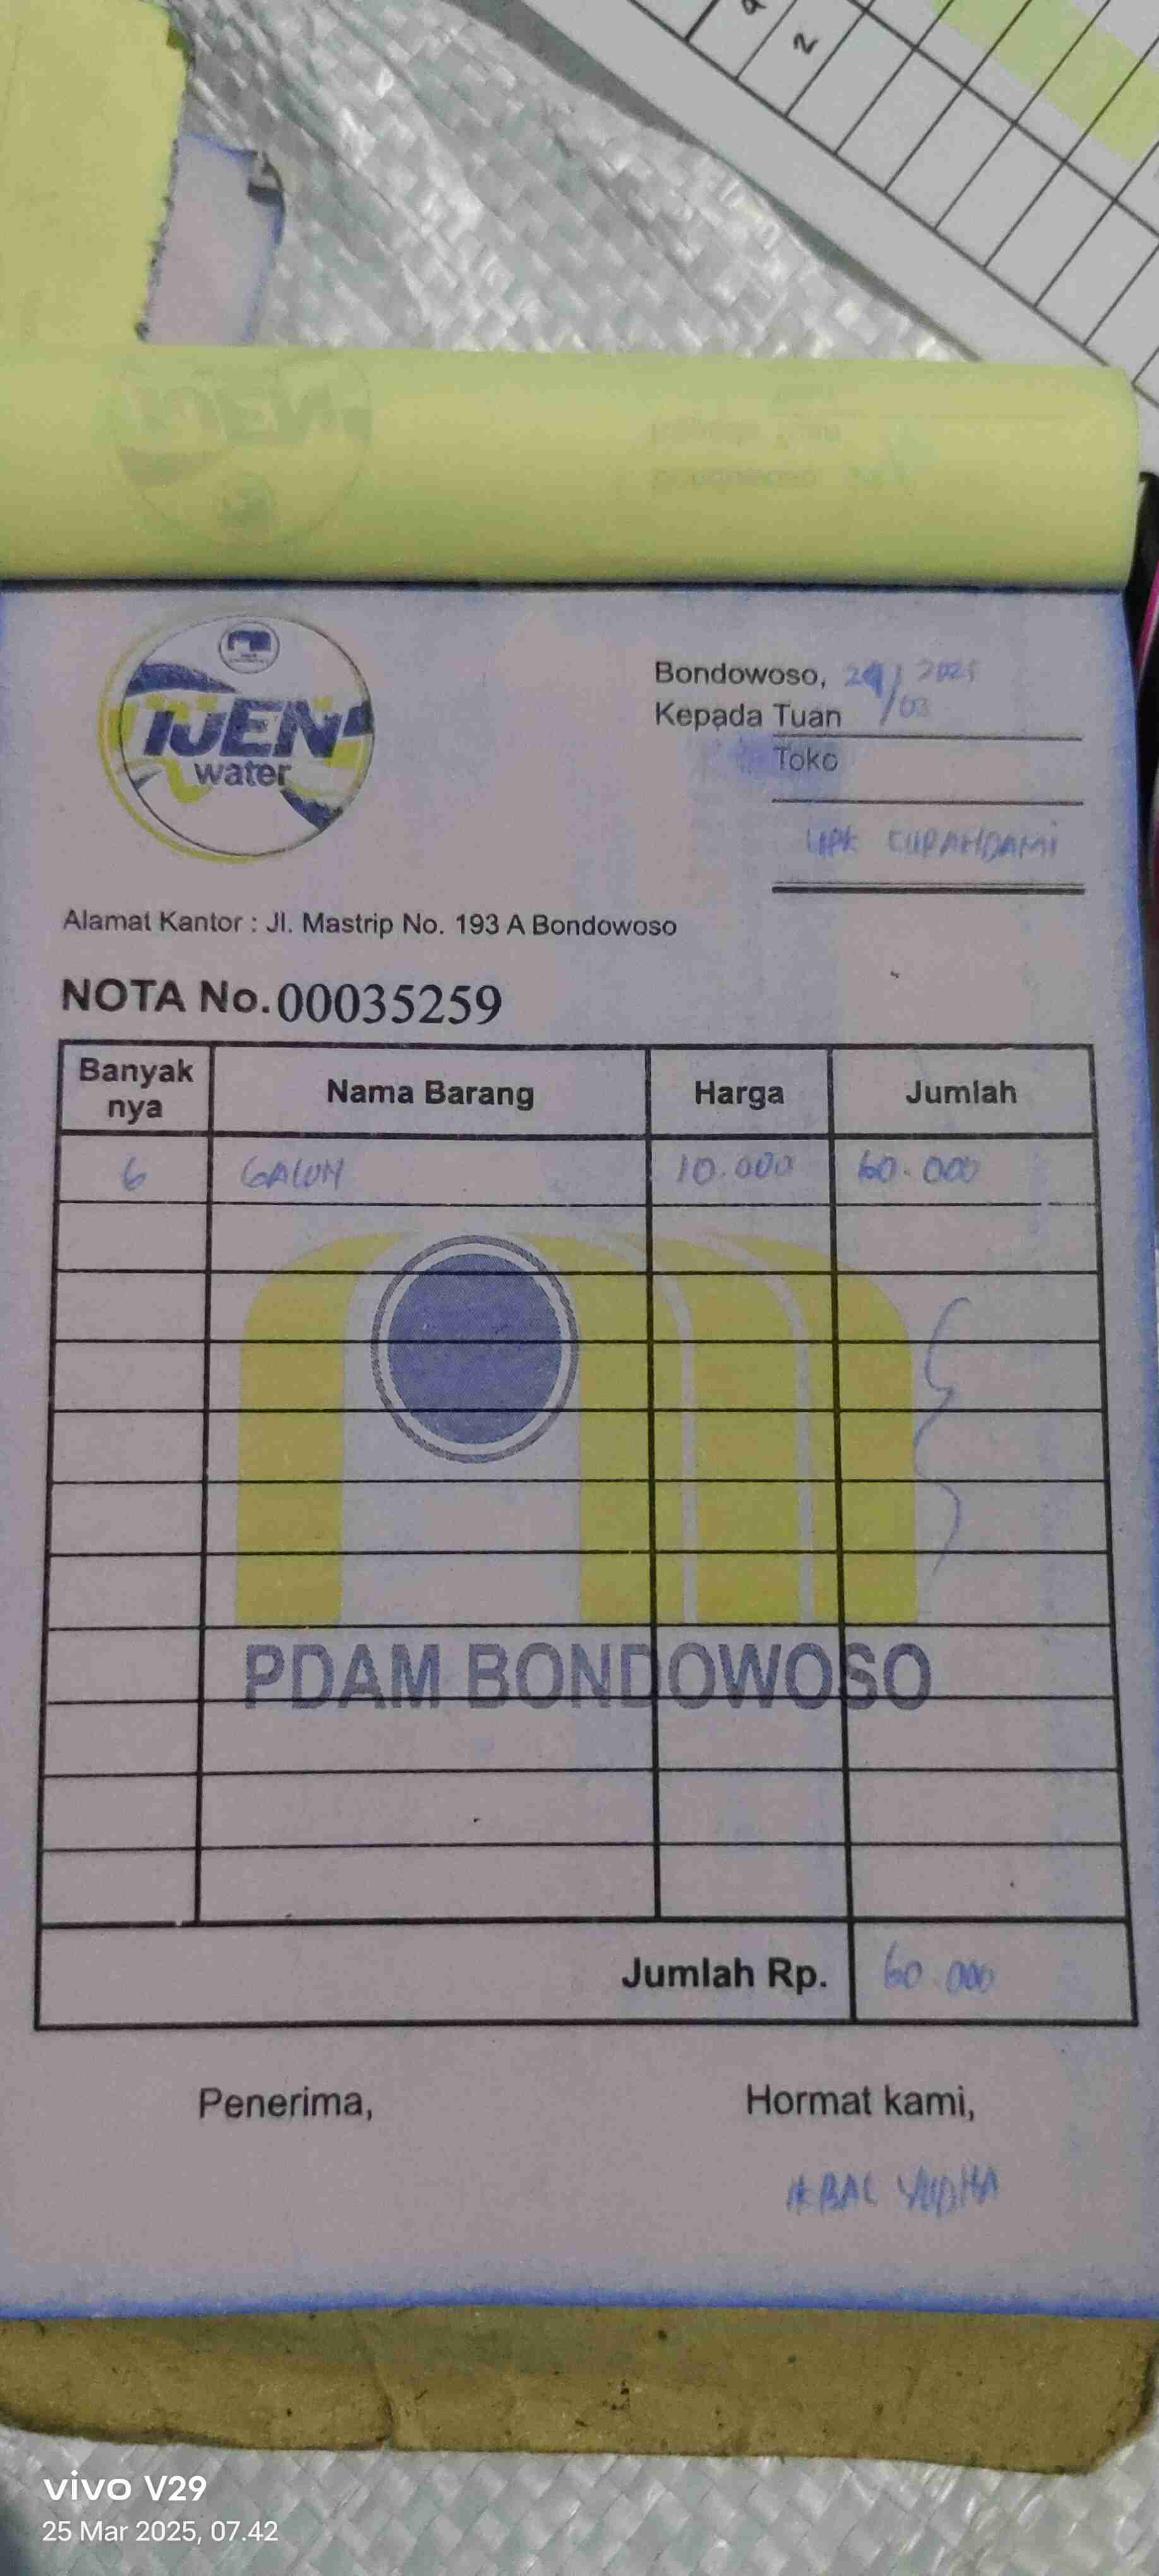 2
IJEN
water
Bondowoso, 24/03 2025
Kepada Tuan
Toko
UPK CURAHDAMI
Alamat Kantor : Jl. Mastrip No. 193 A Bondowoso
NOTA No. 00035259
Banyak nya Nama Barang Harga Jumlah
6 GALON 10.000 60.000
PDAM BONDOWOSO
Jumlah Rp. 60.000
Penerima, Hormat kami,
IKBAL YUDHA
vivo V29
25 Mar 2025, 07.42